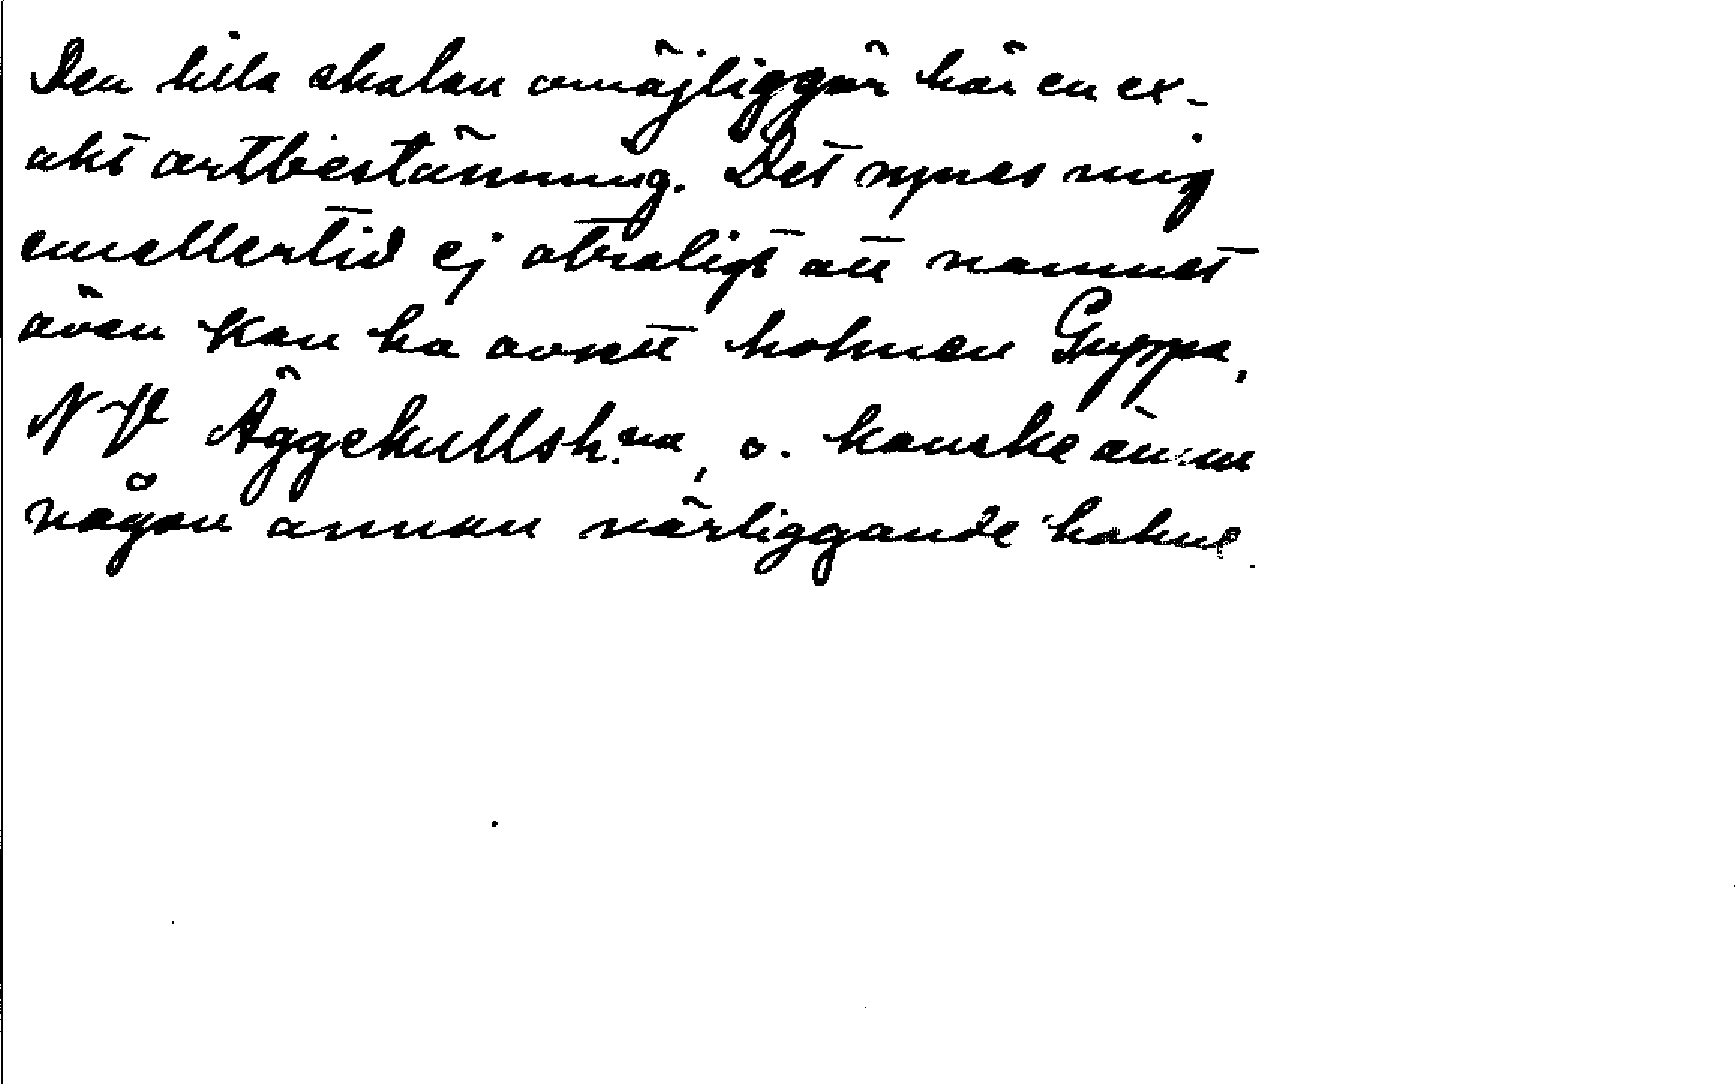 Den lilla skalan omöjliggör här en ex-
akt artbestämning. Det synes mig
emellertid ej otroligt att namnet
även kan ha avsett holmen Guppa,
NV Äggekullsh.na, o. kanske ännu
någon annan närliggande holme.